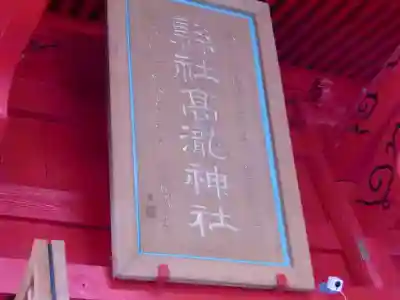 縣社高瀧神社